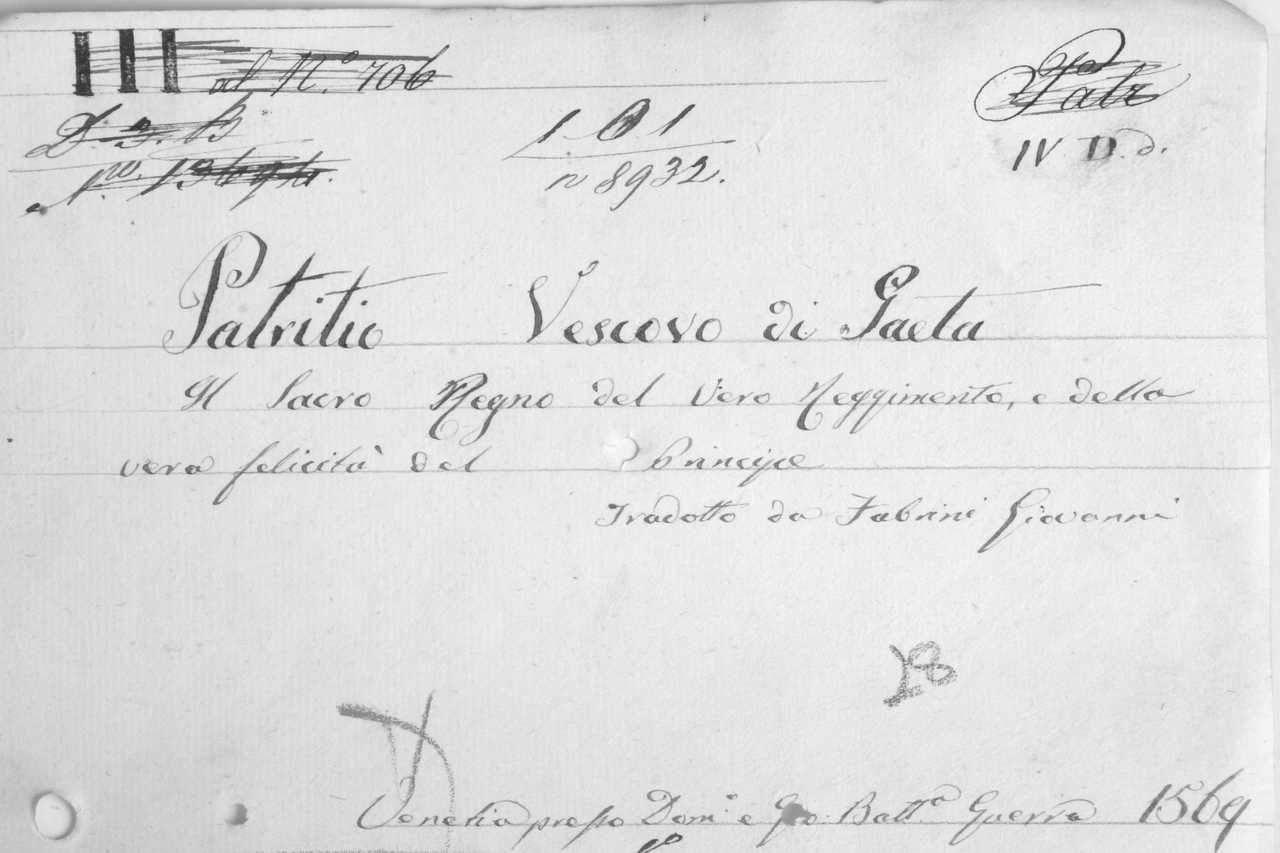 III al N.º 706
Patr
D. 3. B
IV D. d.
1 0 1
N.ro
n 8932.
Patritio Vescovo di Gaeta
Il Sacro Regno del Vero Reggimento, e della
vera felicità del Principe
Tradotto da Fabrini Giovanni
18
Venetia presso Dom.º e Gio: Batt.a Guerra 1569